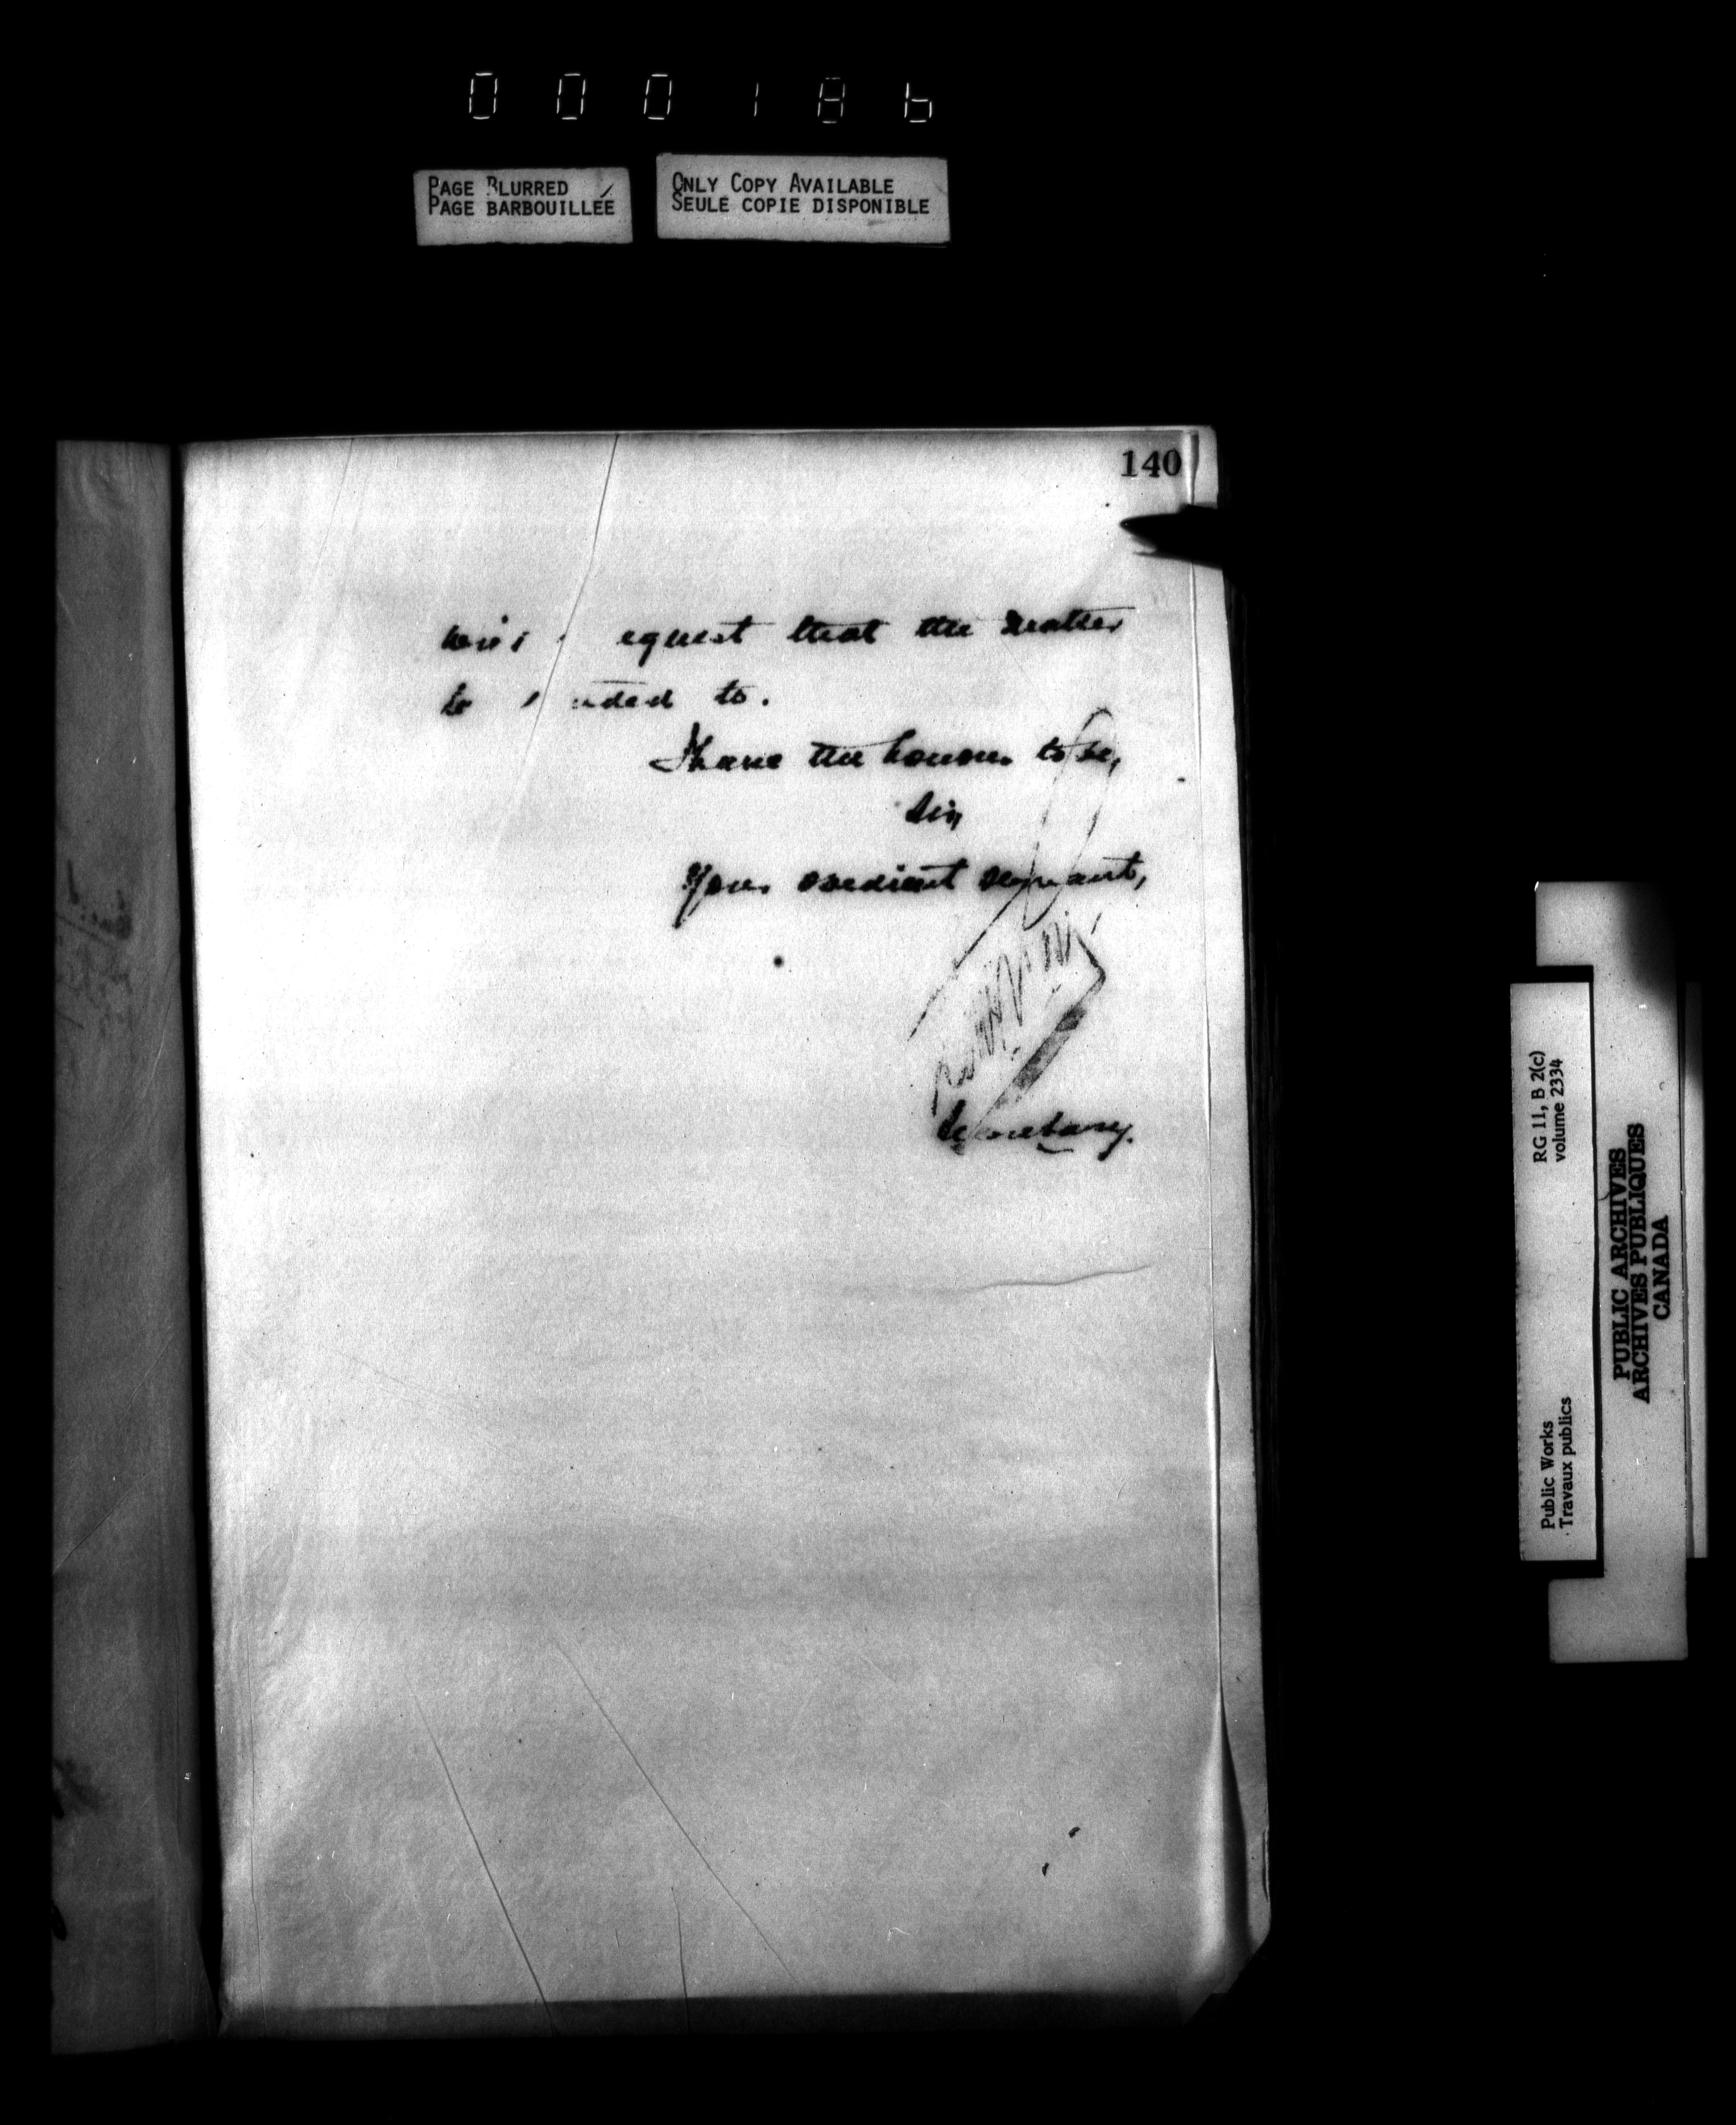 000186
PAGE BLURRED
PAGE BARBOUILLÉE
ONLY COPY AVAILABLE
SEULE COPIE DISPONIBLE
140
equest that the matter
be nded to.
I have the honour to be,
Sir,
Your obedient servant,
Secretary.
RG 11, B 2(c)
volume 2334
Public Works
Travaux publics
PUBLIC ARCHIVES
ARCHIVES PUBLIQUES
CANADA